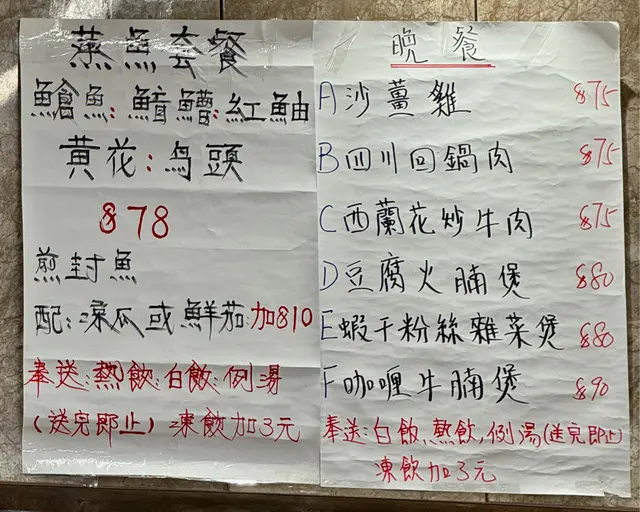 蒸魚套餐
鱠魚:鯌鰽:紅鮋
黄花:鸟頭
$78
煎封魚
配:凉瓜或鮮茄加$10
奉送:熱飲:白飯:例湯
(送完即止)凍飲加3元
晚餐
A沙薑雞 $75
B四川回鍋肉 $75
C西蘭花炒牛肉 $75
D豆腐火腩煲 $80
E蝦干粉絲雜菜煲 $80
F咖喱牛腩煲 $90
奉送:白飯、熱飲,例湯(送完即止)
凍飲加3元